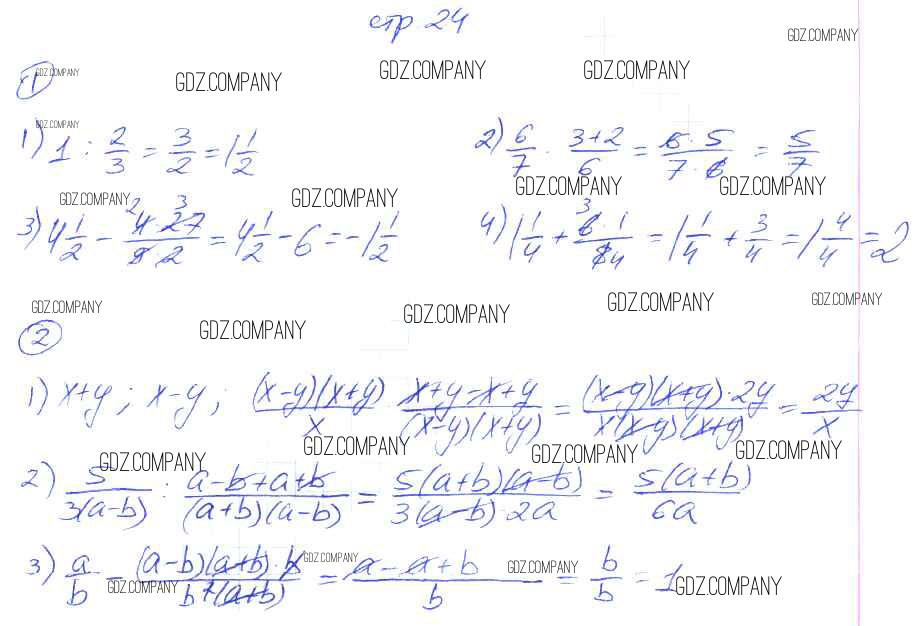 стр 24
GDZ.COMPANY
GDZ.COMPANY GDZ.COMPANY GDZ.COMPANY GDZ.COMPANY
1
GDZ.COMPANY
1) 1 : 2/3 = 3/2 = 1 1/2 2) 6/7 · (3+2)/6 = (6·5)/(7·6) = 5/7
GDZ.COMPANY GDZ.COMPANY GDZ.COMPANY GDZ.COMPANY
3) 4 1/2 − (4·27)/(9·2) = 4 1/2 − 6 = −1 1/2 4) 1 1/4 + (6·1)/(84) = 1 1/4 + 3/4 = 1 4/4 = 2
GDZ.COMPANY GDZ.COMPANY GDZ.COMPANY GDZ.COMPANY GDZ.COMPANY
2
1) x+y ; x−y ; (x−y)(x+y)/x · (x+y−x+y)/((x−y)(x+y)) = ((x−y)(x+y)·2y)/(x(x−y)(x+y)) = 2y/x
GDZ.COMPANY GDZ.COMPANY GDZ.COMPANY GDZ.COMPANY
2) 5/(3(a−b)) : (a−b+a+b)/((a+b)(a−b)) = (5(a+b)(a−b))/(3(a−b)·2a) = (5(a+b))/(6a)
3) a/b − ((a−b)(a+b)·b)/(b²(a+b)) = (a−a+b)/b = b/b = 1
GDZ.COMPANY GDZ.COMPANY GDZ.COMPANY GDZ.COMPANY